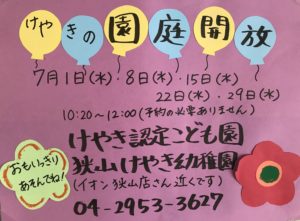 けやきの園庭開放
7月1日(水)・8日(水)・15日(水)
22日(水)・29日(水)
10:20~12:00(予約の必要ありません)
けやき認定こども園
狭山けやき幼稚園
(イオン狭山店さん近くです)
04-2953-3627
おもいっきり
あそんでね!